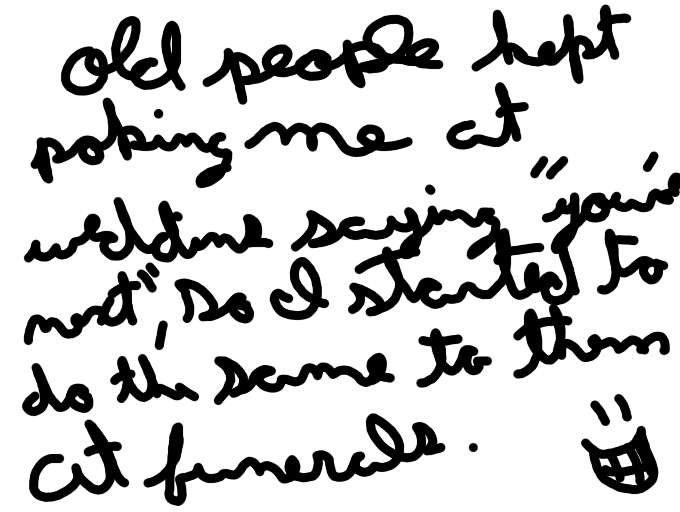 old people kept
poking me at
weddings saying "you're
next", so I started to
do the same to them
at funerals.